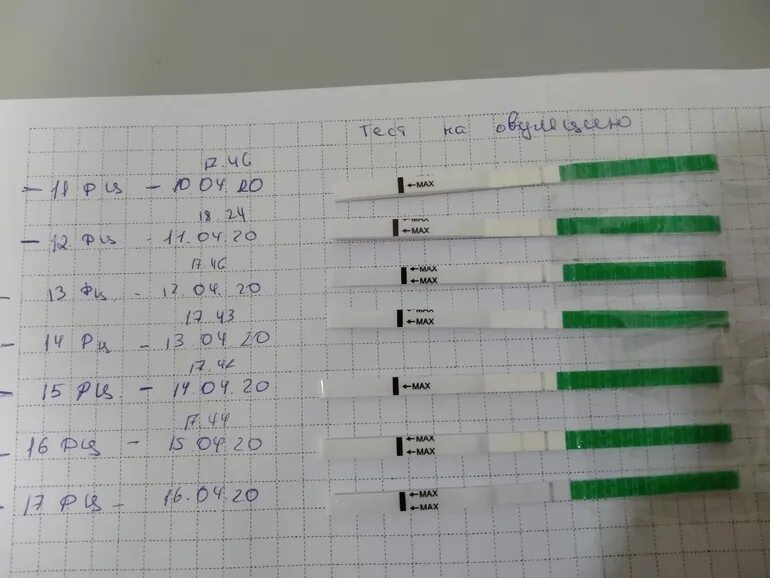 Тест на овуляцию
17.46
- 11 ФЦ - 10 04 20
←MAX
18.24
- 12 ФЦ - 11.04.20
←MAX
←MAX
17 46
- 13 ФЦ - 12 04. 20
←MAX
←MAX
17.43
- 14 ФЦ - 13 04. 20
←MAX
←MAX
17.42
- 15 ФЦ - 14.04.20
←MAX
17.44
- 16 ФЦ - 15 04.20
←MAX
←MAX
- 17 ФЦ - 16.04.20
←MAX
←MAX